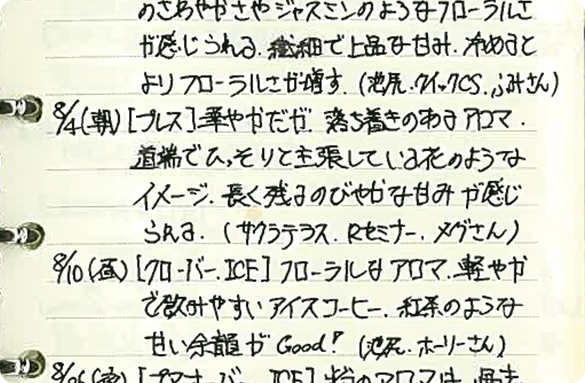 のさわやかさやジャスミンのようなフローラルさ
が感じられる. 繊細で上品な甘み. 冷めると
よりフローラルさが増す. (池尻. クイックCS. ふみさん)
8/4(朝) [プレス] 華やかだが. 落ち着きのあるアロマ.
道端でひっそりと主張している花のような
イメージ. 長く残るのびやかな甘みが感じ
られる. (サクラテラス. Rセミナー. メグさん)
8/10(昼) [クローバー. ICE] フローラルなアロマ. 軽やか
で飲みやすいアイスコーヒー. 紅茶のような
せい余韻がGood! (池尻. ホーリーさん)
ICE] 粉のアロマは